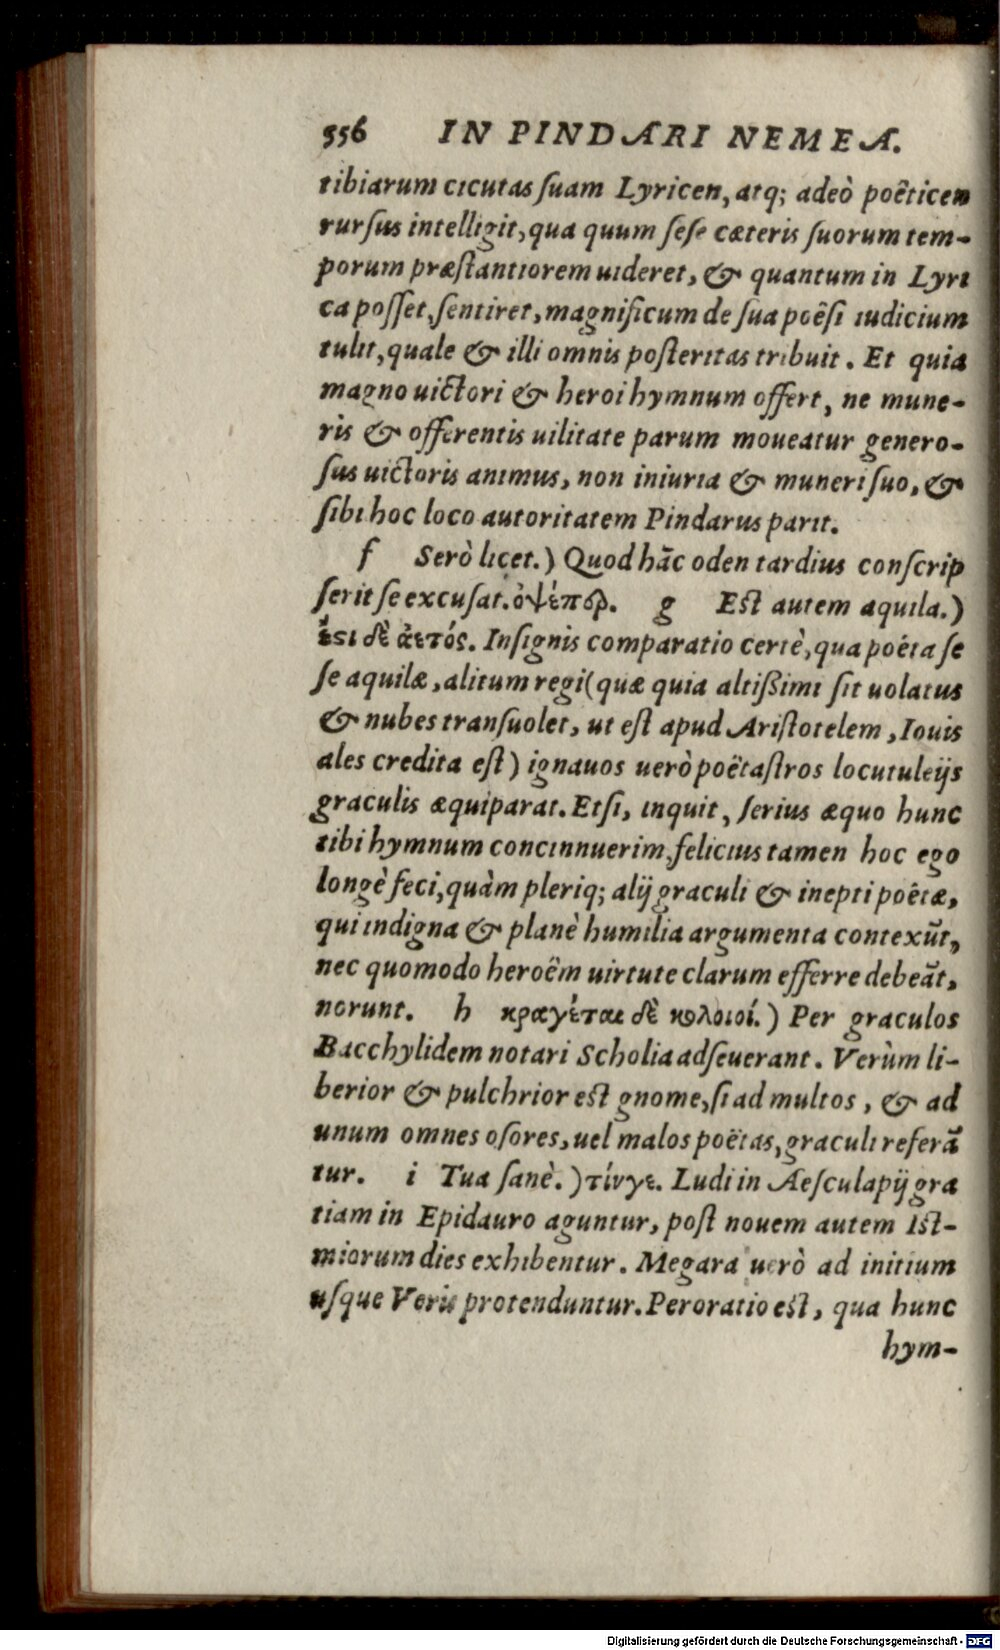 556 IN PINDARI NEMEA.
tibiarum cicutas ſuam Lyricen, atq; adeò poêticem
rurſus intelligit, qua quum ſeſe cæteris ſuorum tem-
porum præſtantiorem uideret, & quantum in Lyri
ca poſſet, ſentiret, magnificum de ſua poêſi iudicium
tulit, quale & illi omnis poſteritas tribuit. Et quia
magno uictori & heroi hymnum offert, ne mune-
ris & offerentis uilitate parum moueatur genero-
ſus uictoris animus, non iniuria & muneri ſuo, &
ſibi hoc loco autoritatem Pindarus parit.
f Serò licet.) Quod hãc oden tardius conſcrip
ſerit ſe excuſat. ὀψέπερ. g Eſt autem aquila.)
ἔστι δὲ ἀετός. Inſignis comparatio certè, qua poëta ſe
ſe aquilæ, alitum regi (quæ quia altißimi ſit uolatus
& nubes tranſuolet, ut eſt apud Ariſtotelem, Iouis
ales credita eſt) ignauos uerò poëtaſtros locutuleijs
graculis æquiparat. Etſi, inquit, ſerius æquo hunc
tibi hymnum concinnuerim, felicius tamen hoc ego
longè feci, quàm pleriq; alij graculi & inepti poëtæ,
qui indigna & planè humilia argumenta contexũt,
nec quomodo heroêm uirtute clarum efferre debeãt,
norunt. h κραγέται δὲ κολοιοί.) Per graculos
Bacchylidem notari Scholia adſeuerant. Verùm li-
berior & pulchrior eſt gnome, ſi ad multos, & ad
unum omnes oſores, uel malos poëtas, graculi referã
tur. i Tua ſanè.) τίνγε. Ludi in Aeſculapij gra
tiam in Epidauro aguntur, poſt nouem autem Iſt-
miorum dies exhibentur. Megara uerò ad initium
uſque Veris protenduntur. Peroratio eſt, qua hunc
hym-
Digitalisierung gefördert durch die Deutsche Forschungsgemeinschaft - DFG